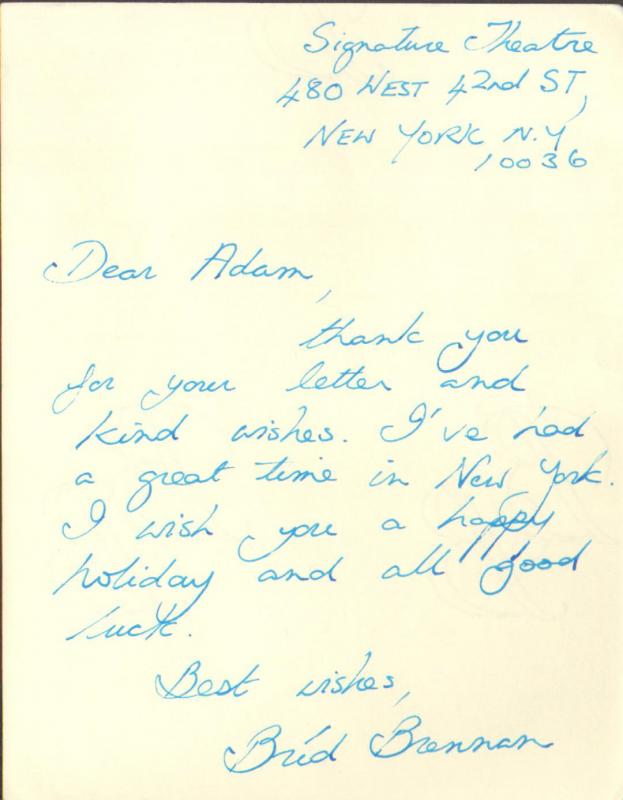 Signature Theatre
480 WEST 42nd ST,
NEW YORK N.Y
10036
Dear Adam,
thank you
for your letter and
kind wishes. I've had
a great time in New York.
I wish you a happy
holiday and all good
luck.
Best wishes,
Bríd Brennan